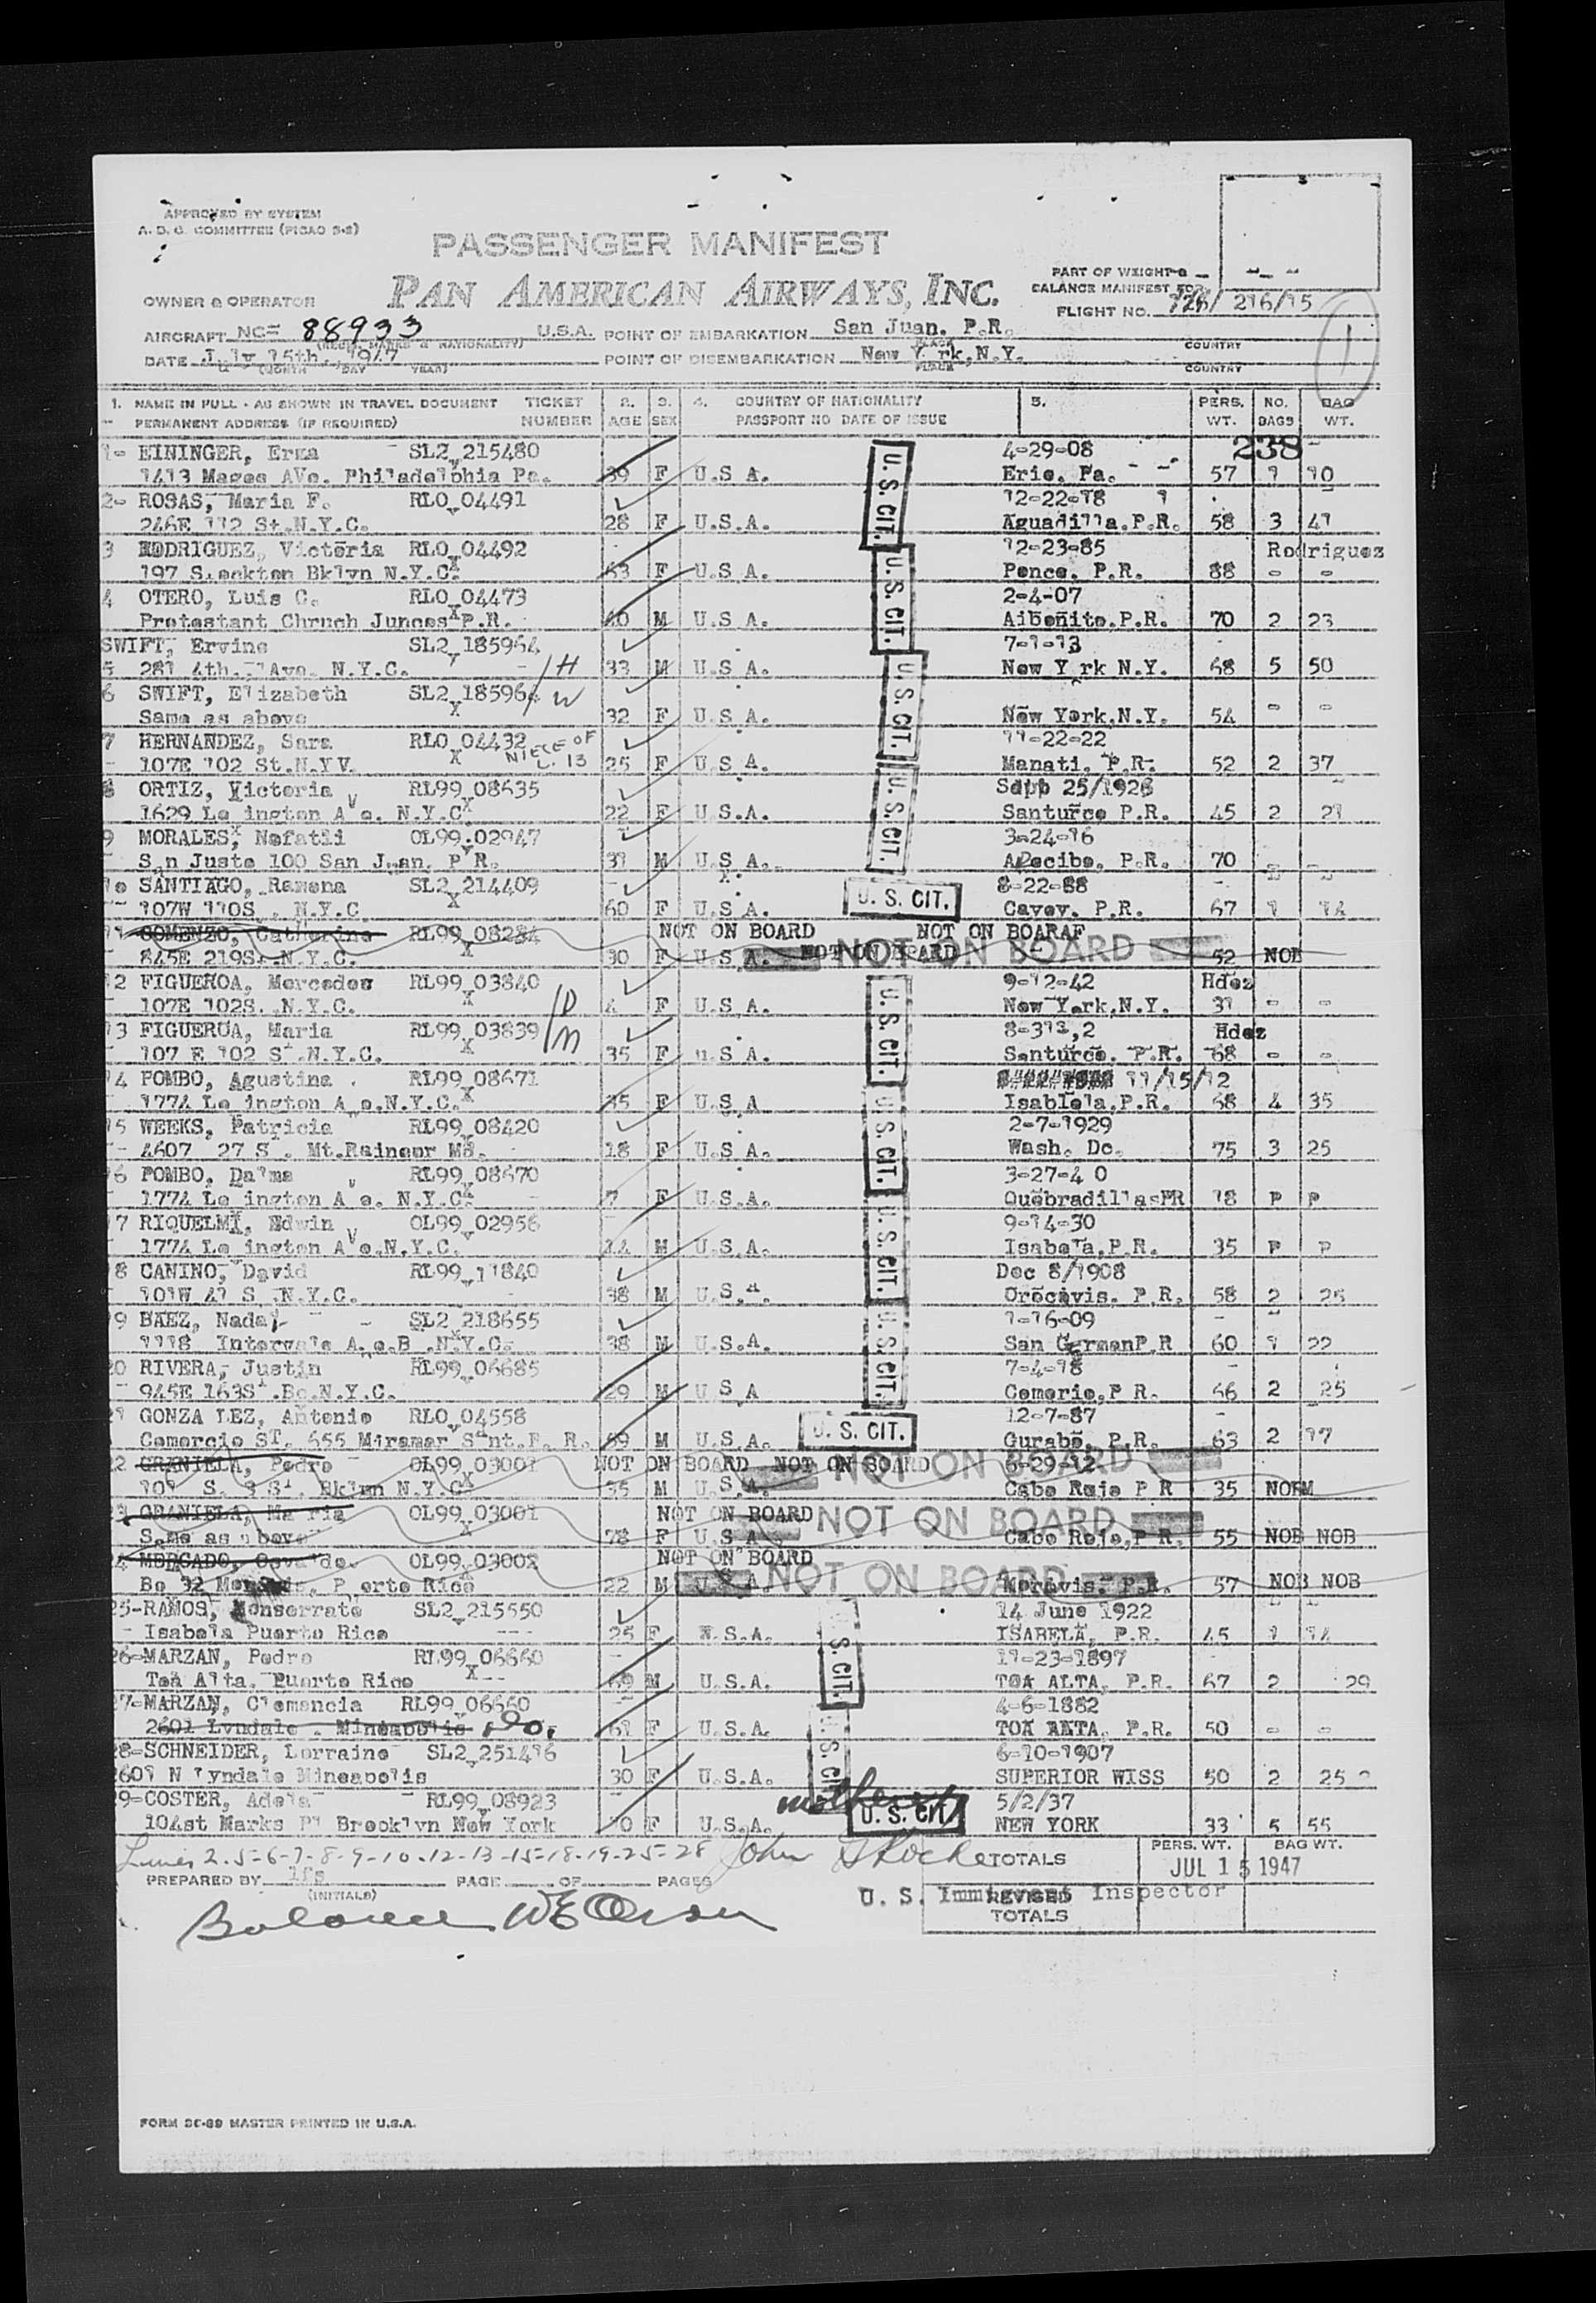 APPROVED BY SYSTEM
A. D. G. COMMITTEE (PICAO 9-2)
PASSENGER MANIFEST
PAN AMERICAN AIRWAYS, INC.
PART OF WEIGHT &
BALANCE MANIFEST FOR
OWNER & OPERATOR
FLIGHT NO. 726/ 216/15
AIRCRAFT NC= 88933 U.S.A. POINT OF EMBARKATION San Juan. P.R.
DATE July 15th. 1947 POINT OF DISEMBARKATION New Y rk,N.Y.
(MONTH DAY YEAR) PLACE COUNTRY
1. NAME IN FULL - AS SHOWN IN TRAVEL DOCUMENT TICKET 2. 3. 4. COUNTRY OF NATIONALITY 5. PERS. NO. BAG
PERMANENT ADDRESS (IF REQUIRED) NUMBER AGE SEX PASSPORT NO DATE OF ISSUE WT. BAGS WT.
238
1- EININGER, Erma SL2 215480 4-29-08
1413 Magee AVe. Philadelphia Pa. 39 F U.S A. Erie, Pa. 57 1 10
2- ROSAS, Maria F. RLO 04491 12-22-18
246E 112 St.N.Y.C. 28 F U.S.A. Aguadilla.P.R. 58 3 41
3 RODRIGUEZ, Victoria RLO 04492 12-23-85 Rodriguez
197 Stockton Bklyn N.Y.C. 63 F U.S A. Ponce. P.R. 88 - -
4 OTERO, Luis C. RLO 04473 2-4-07
Protestant Chruch Juncos P.R. 40 M U.S A. Aibonito.P.R. 70 2 23
SWIFT, Ervine SL2 185964 7-1-13
5 281 4th. Ave. N.Y.C. H 33 M U.S.A. New Y rk N.Y. 68 5 50
6 SWIFT, Elizabeth SL2 185964 W
Same as above 32 F U.S A. New York,N.Y. 54 - -
7 HERNANDEZ, Sara RLO 04432 NIECE OF L. 13 11-22-22
107E 102 St.N.Y V. 25 F U.S A. Manati, P.R. 52 2 37
8 ORTIZ, Victoria RL99 08635 25/1928
1629 Le ington A e. N.Y.C. 22 F U S.A. Santurce P.R. 45 2 21
9 MORALES, Nefatli OL99 02947 3-24-16
S n Juste 100 San J an. P R. 31 M U.S A. Arecibo, P.R. 70 - -
10 SANTIAGO, Ramona SL2 214409 8-22-88
107W 110S . N.Y.C 60 F U.S A. U. S. CIT. Cayey. P.R. 67 1 14
11 GOMENZO, Catherine RL99 08284 NOT ON BOARD NOT ON BOARAF
845E 219S .N.Y.C. 30 F U S A. NOT ON BOARD NOT ON BOARD 52 NOB
12 FIGUEROA, Mercedes RL99 03840 D 9-12-42 Hdez
107E 102S. .N.Y.C. 4 F U.S.A. New York,N.Y. 31 - -
13 FIGUEROA, Maria RL99 03839 M Hdez
107 E 102 St.N.Y.C. 35 F u.S A. Santurce. P.R. 68 - -
14 POMBO, Agustina RL99 08671 11/15/12
1774 Le ington A e.N.Y.C. 35 F U.S.A Isabella,P.R. 68 4 35
15 WEEKS, Patricia RL99 08420 2-7-1929
4607 27 S . Mt.Raineer Md. 18 F U.S A. Wash. Dc. 75 3 25
16 POMBO, Dalma RL99 08670 3-27-4 0
1774 Le ington A e. N.Y.C. 7 F U.S.A. Quebradillas PR 18 P P
17 RIQUELMI, Edwin OL99 02956 9-14-30
1774 Le ington A e.N.Y.C. M U.S.A. Isabela,P.R. 35 P P
18 CANINO, David RL99 11840 Dec 8/1908
101W 41 S .N.Y.C. 38 M U.S.A. Orocovis. P.R. 58 2 25
19 BAEZ, Nada SL2 218655 1-16-09
1118 Intervale A e.B .N.Y.C. 38 M U.S.A. San GermanP.R 60 1 22
20 RIVERA, Justin RL99 06685 7-4-18
945E 163St.Bo.N.Y.C. 29 M U S A Comerio,P R. 66 2 25
21 GONZA LEZ, Antonio RLO 04558 12-7-87
Comercio ST. 655 Miramar Sant.P. R. 59 M U.S.A. U. S. CIT. Gurabo, P.R. 63 2 17
22 GRANIELA, Pedro OL99 03001 NOT ON BOARD NOT ON BOARD NOT ON BOARD 6-29-12
101 S. 3 St. Bklyn N.Y.C. 35 M U.S.A. Cabo Rojo P R 35 NOBM
23 GRANIELA, Ma ria OL99 03001 NOT ON BOARD NOT ON BOARD
Same as above 78 F U.S A Cabo Rojo,P R. 55 NOB NOB
24 MERCADO, Osvaldo. OL99 03002 NOT ON BOARD NOT ON BOARD
Bo 32 P erto Rico 22 M U.S.A. P.R. 57 NOB NOB
25-RAMOS, Monserrate SL2 215550 14 June 1922
Isabela Puerto Rico 25 F S.A. ISABELA, P.R. 45 1 14
26-MARZAN, Pedro RL99 06660 11-23-1897
Toa Alta. Puerto Rico 69 M U.S.A. TOA ALTA, P.R. 67 2 29
27-MARZAN, Clemencia RL99 06660 4-6-1882
2601 Lyndale . Mineapolis Do. 61 F U.S.A. TOA ALTA, P.R. 50 - -
28-SCHNEIDER, Lorraine SL2 251416 6-10-1907
2601 N Lyndale Mineapolis 30 F U.S.A. SUPERIOR WISS 50 2 25
29-COSTER, Adela RL99 08923 mother U. S. CIT. 5/2/37
104st Marks Pl Brooklyn New York 10 F U.S.A. NEW YORK 33 5 55
U. S. CIT.
U. S. CIT.
U. S. CIT.
U. S. CIT.
U. S. CIT.
U. S. CIT.
U. S. CIT.
U. S. CIT.
U. S. CIT.
U. S. CIT.
Lines 2-5-6-7-8-9-10-12-13-15-18-19-25-28 John TOTALS PERS. WT. BAG WT.
PREPARED BY PAGE OF PAGES JUL 15 1947
(INITIALS) U. S. Immigrant Inspector
REVISED
TOTALS
FORM SC-69 MASTER PRINTED IN U.S.A.